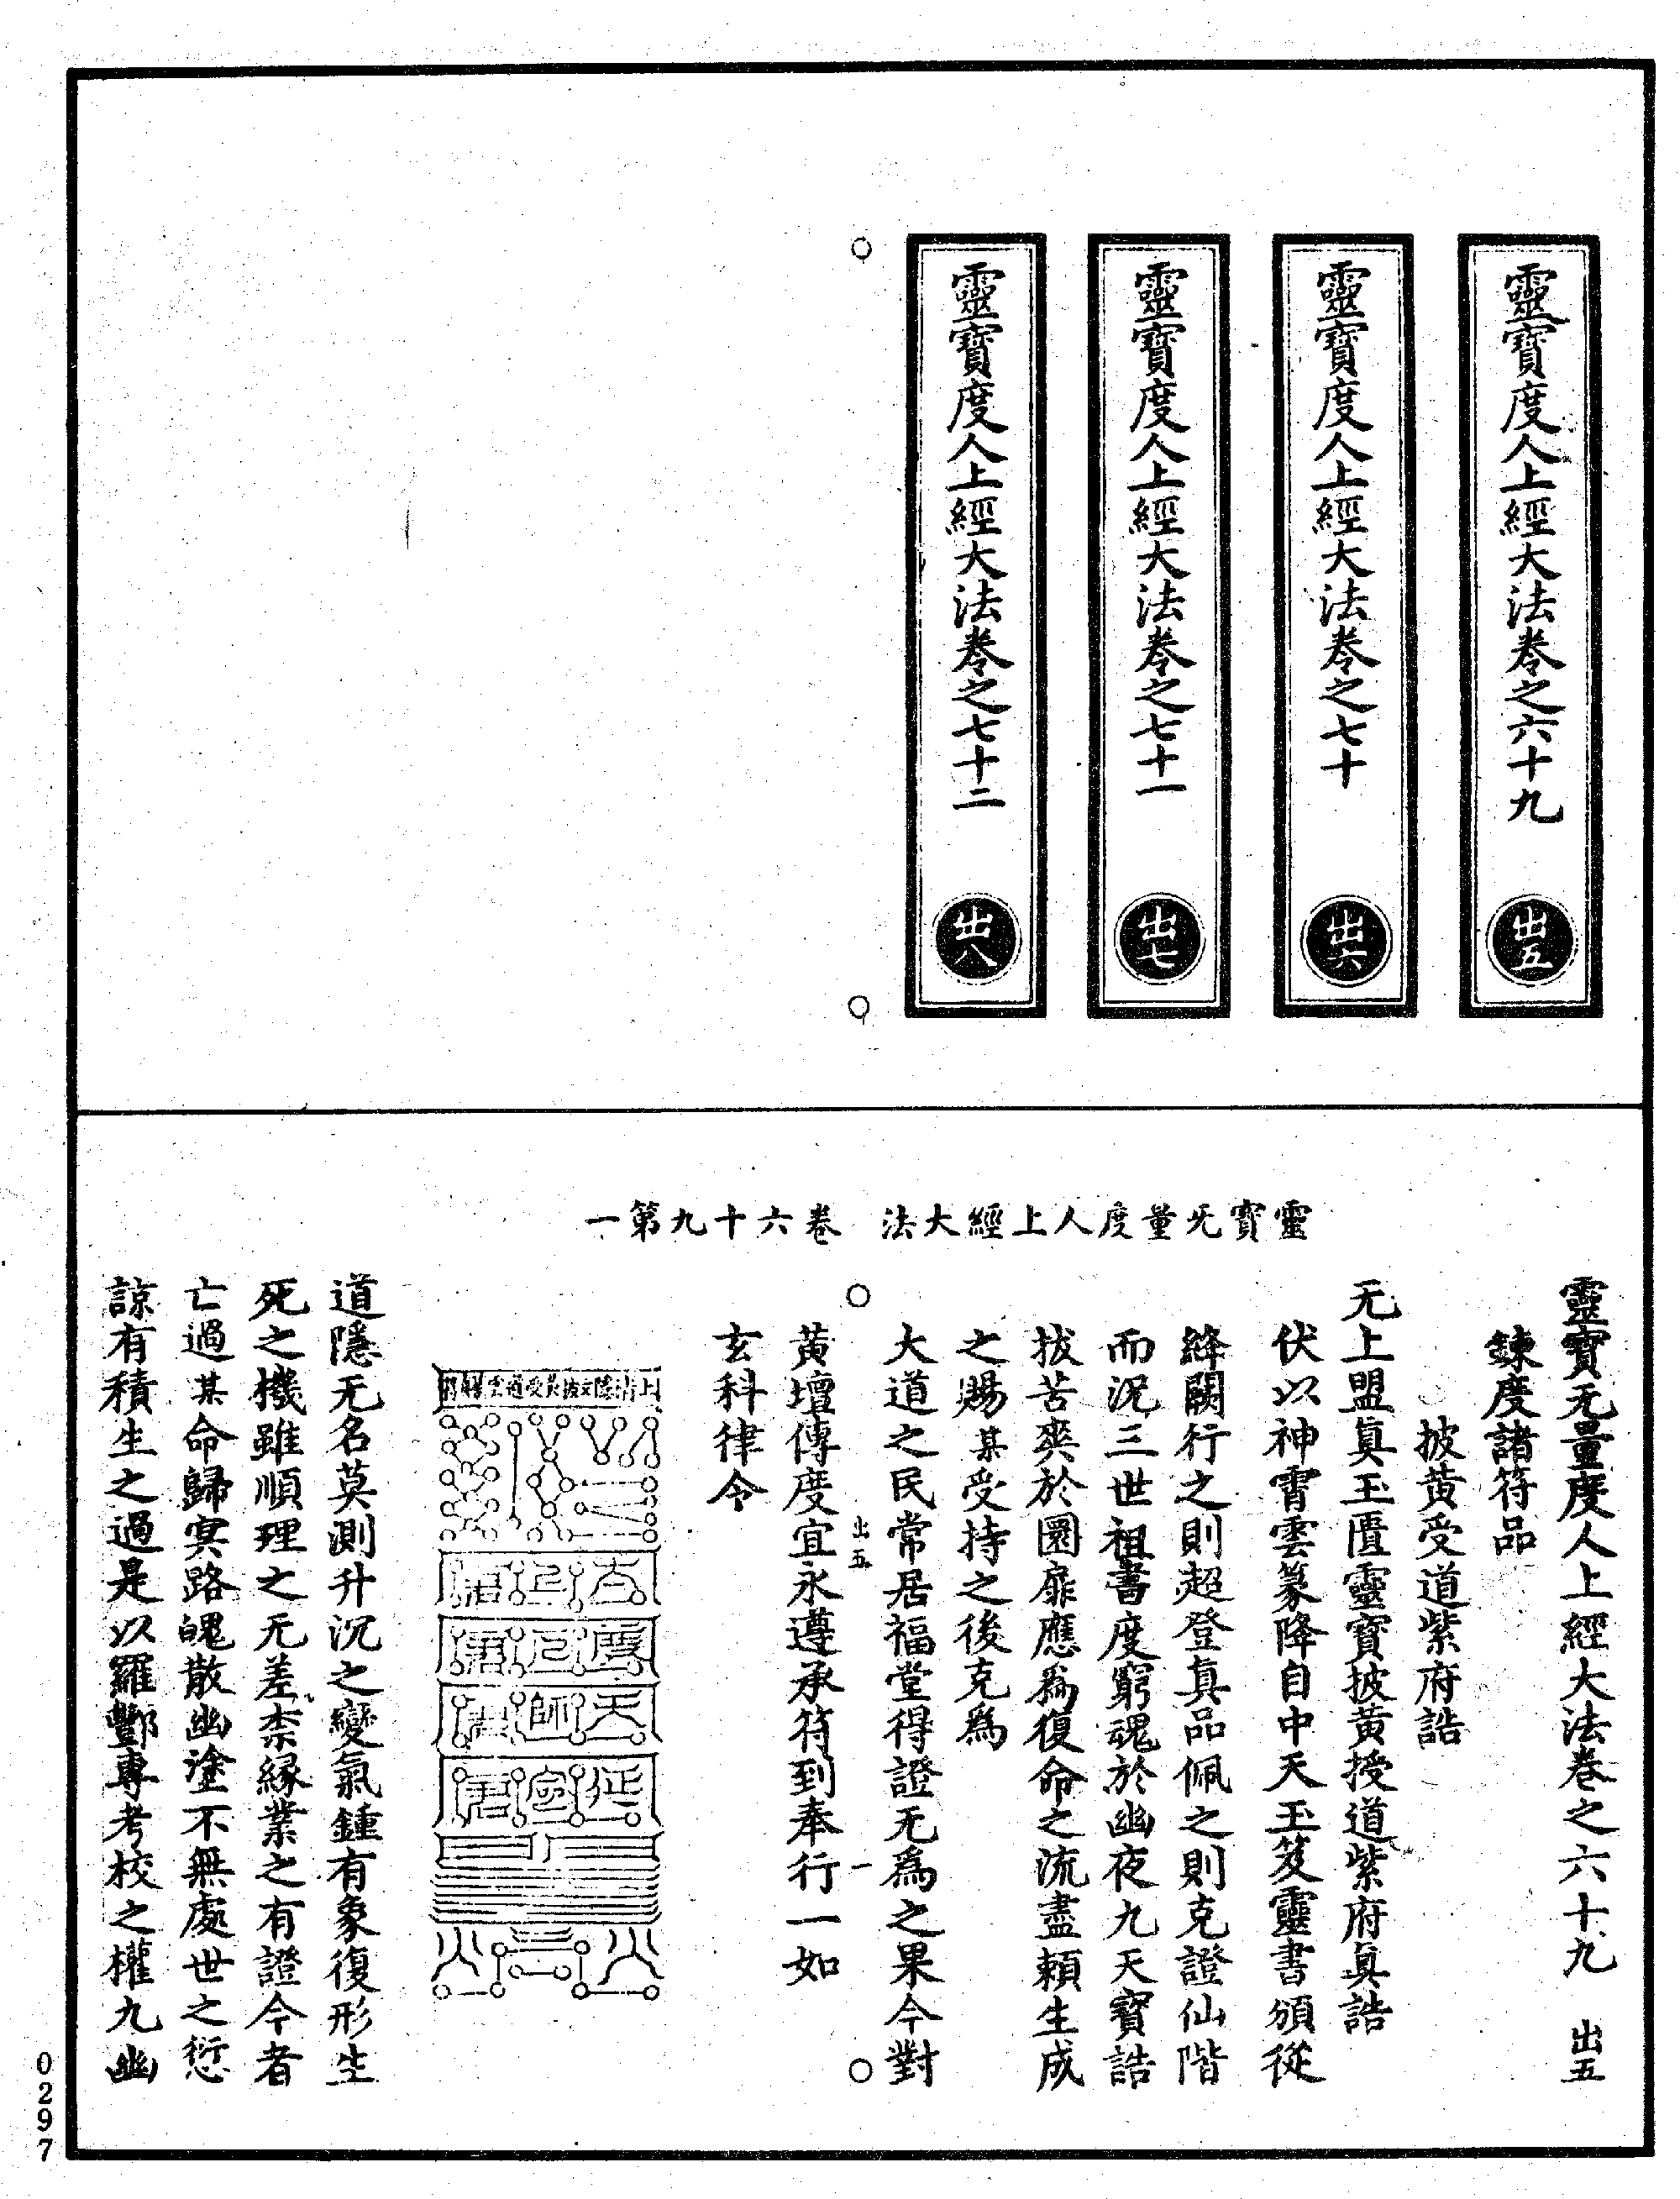 靈寶度人上經大法卷之六十九
出五
靈寶度人上經大法卷之七十
出六
靈寶度人上經大法卷之七十一
出七
靈寶度人上經大法卷之七十二
出八
靈寶无量度人上經大法 卷六十九第一
靈寶无量度人上經大法卷之六十九 出五
鍊度諸符品
披黃受道紫府誥
无上盟眞玉匱靈寶披黃授道紫府眞誥
伏以神霄雲篆降自中天玉笈靈書頒從
絳闕行之則超登眞品佩之則克證仙階
而況三世祖書度窮魂於幽夜九天寶誥
拔苦爽於圜扉應爲復命之流盡賴生成
之賜某受持之後克爲
大道之民常居福堂得證无爲之果今對
出五 一
黃壇傳度宜永遵承符到奉行一如
玄科律令
道隱无名莫測升沉之變氣鍾有象復形生
死之機雖順理之无差柰緣業之有證今者
亡過某命歸冥路魄散幽塗不無處世之愆
諒有積生之過是以羅酆專考校之權九幽
0297